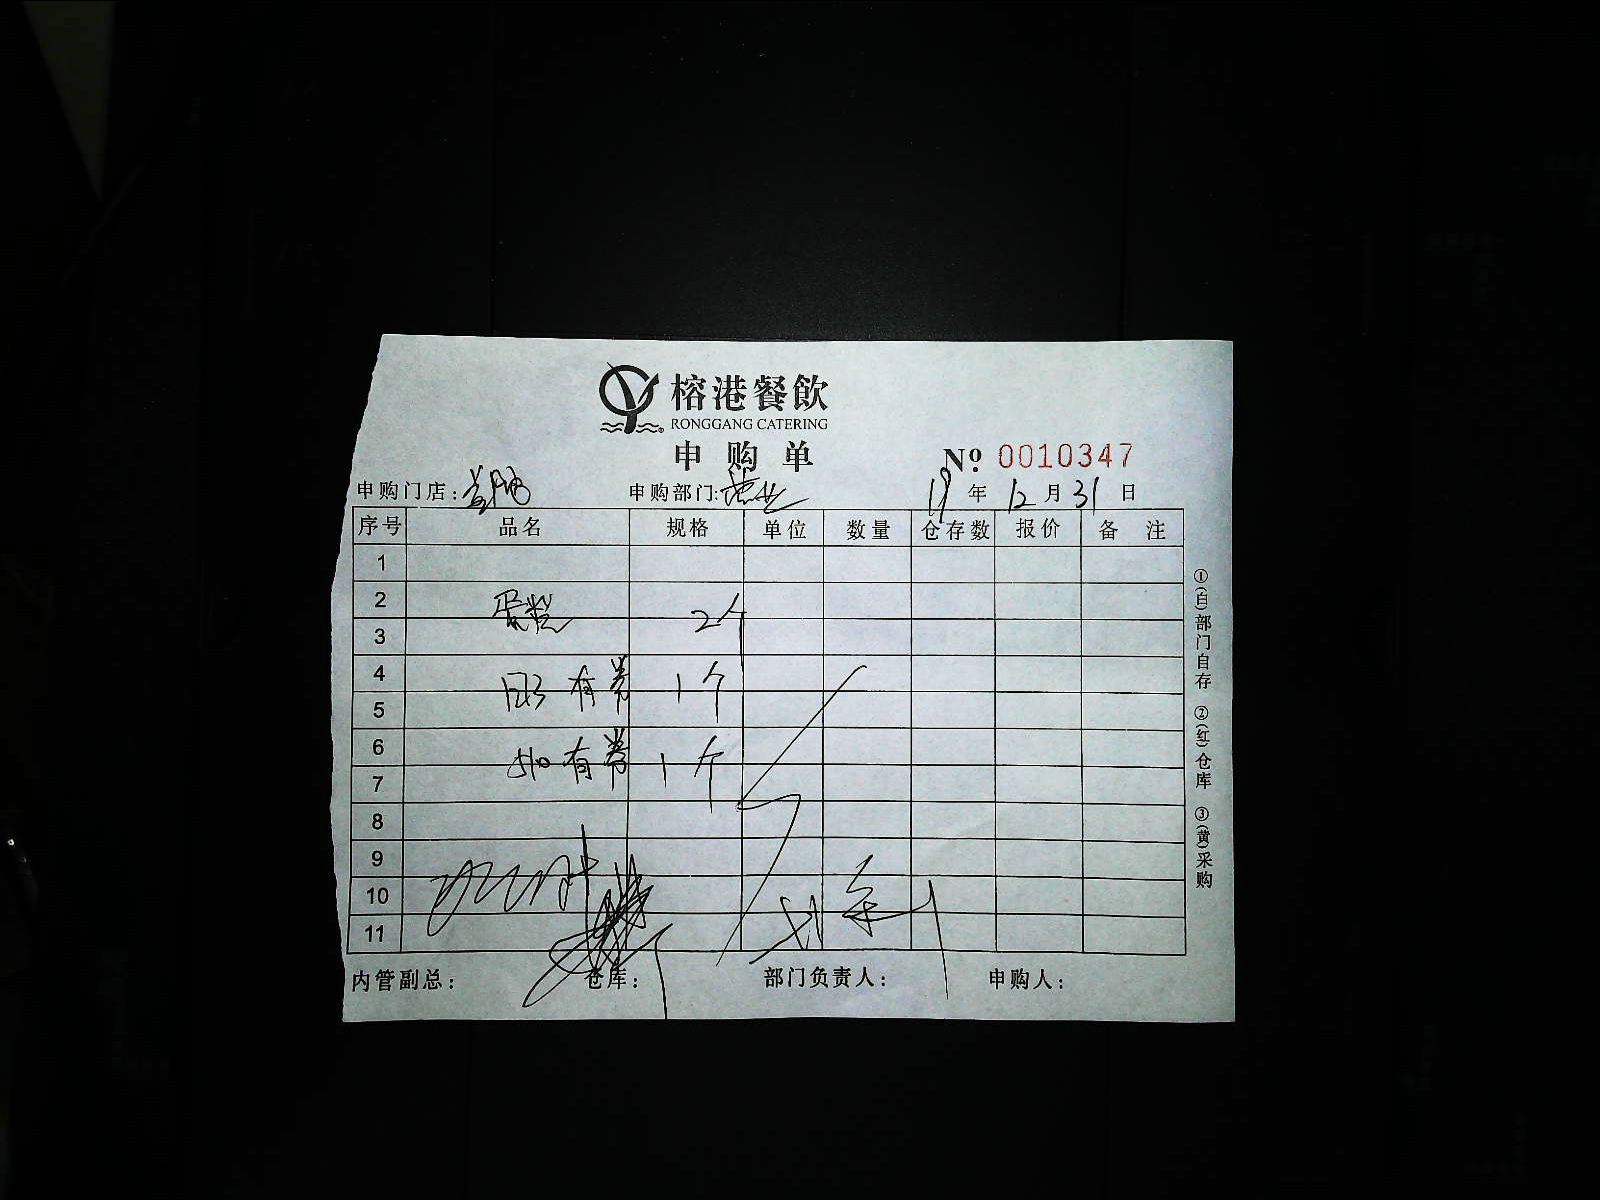 榕港餐飲
RONGGANG CATERING
申购单
№ 0010347
申购门店: 申购部门: 营业 19年12月31日
序号 品名 规格 单位 数量 仓存数 报价 备注
1
2 蛋糕 2个
3
4 有券 1个
5
6 有券 1个
7
8
9
10
11
内管副总: 仓库: 部门负责人: 申购人:
①(白)部门自存 ②(红)仓库 ③(黄)采购